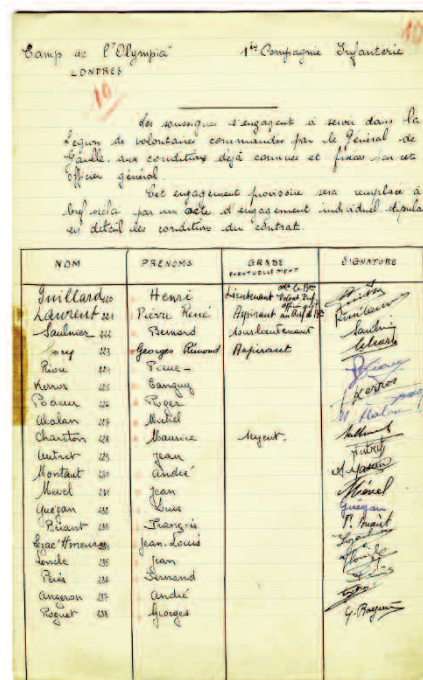 Camp de l'Olympia 1ère Compagnie Infanterie 10
LONDRES
10
Les soussignés s'engagent à servir dans la
Légion de volontaires commandée par le Général de
Gaulle aux conditions déjà connues et fixées par cet
Officier général.
Cet engagement provisoire sera remplacé à
bref délai par un acte d'engagement individuel stipulant
en détail les conditions du contrat.
NOM PRÉNOMS GRADE SIGNATURE
EVENTUELLEMENT
Guillard 220 Henri Lieutenant
Laurent 221 Pierre René Aspirant
Saulnier 222 Bernard sous lieutenant
223 Georges Rémond Aspirant
Riou 224 Pierre
Kerros 225 Tanguy Kerros
226 Roger
227
Charston 228 Maurice Sergent.
Autret 229 Jean Autret
Montaut 230 André
Mével 231 Jean Mével
Guégan 232 Louis Guégan
Briant 233 François
234 Jean-Louis
235 Jean
236 Fernand
Angeron 237 André
Roguet 238 Georges